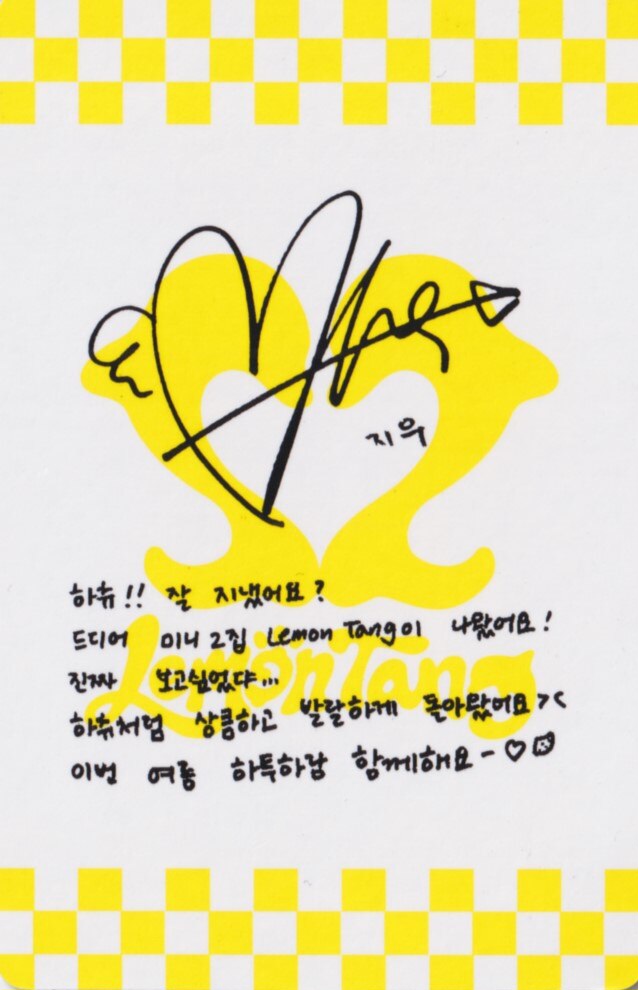 지우
하츄!! 잘 지냈어요?
드디어 미니 2집 Lemon Tang이 나왔어요!
진짜 보고싶었댜...
하츄처럼 상큼하고 발랄하게 돌아왔어요><
이번 여름 하투하랑 함께해요~♡
Lemon Tang